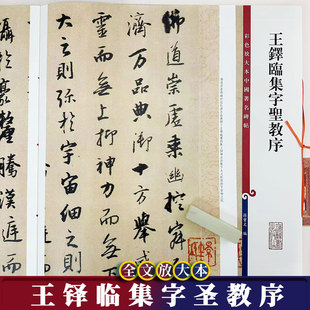 王鐸臨集字聖教序
彩色放大本中國著名碑帖
孫寶文 編
佛道崇虛乘幽控寂
濟萬品典御十方舉威
靈而無上抑神力而無
大之則弥於宇宙細之則
攝於豪釐
騰漢庭而
全文放大本
王铎临集字圣教序